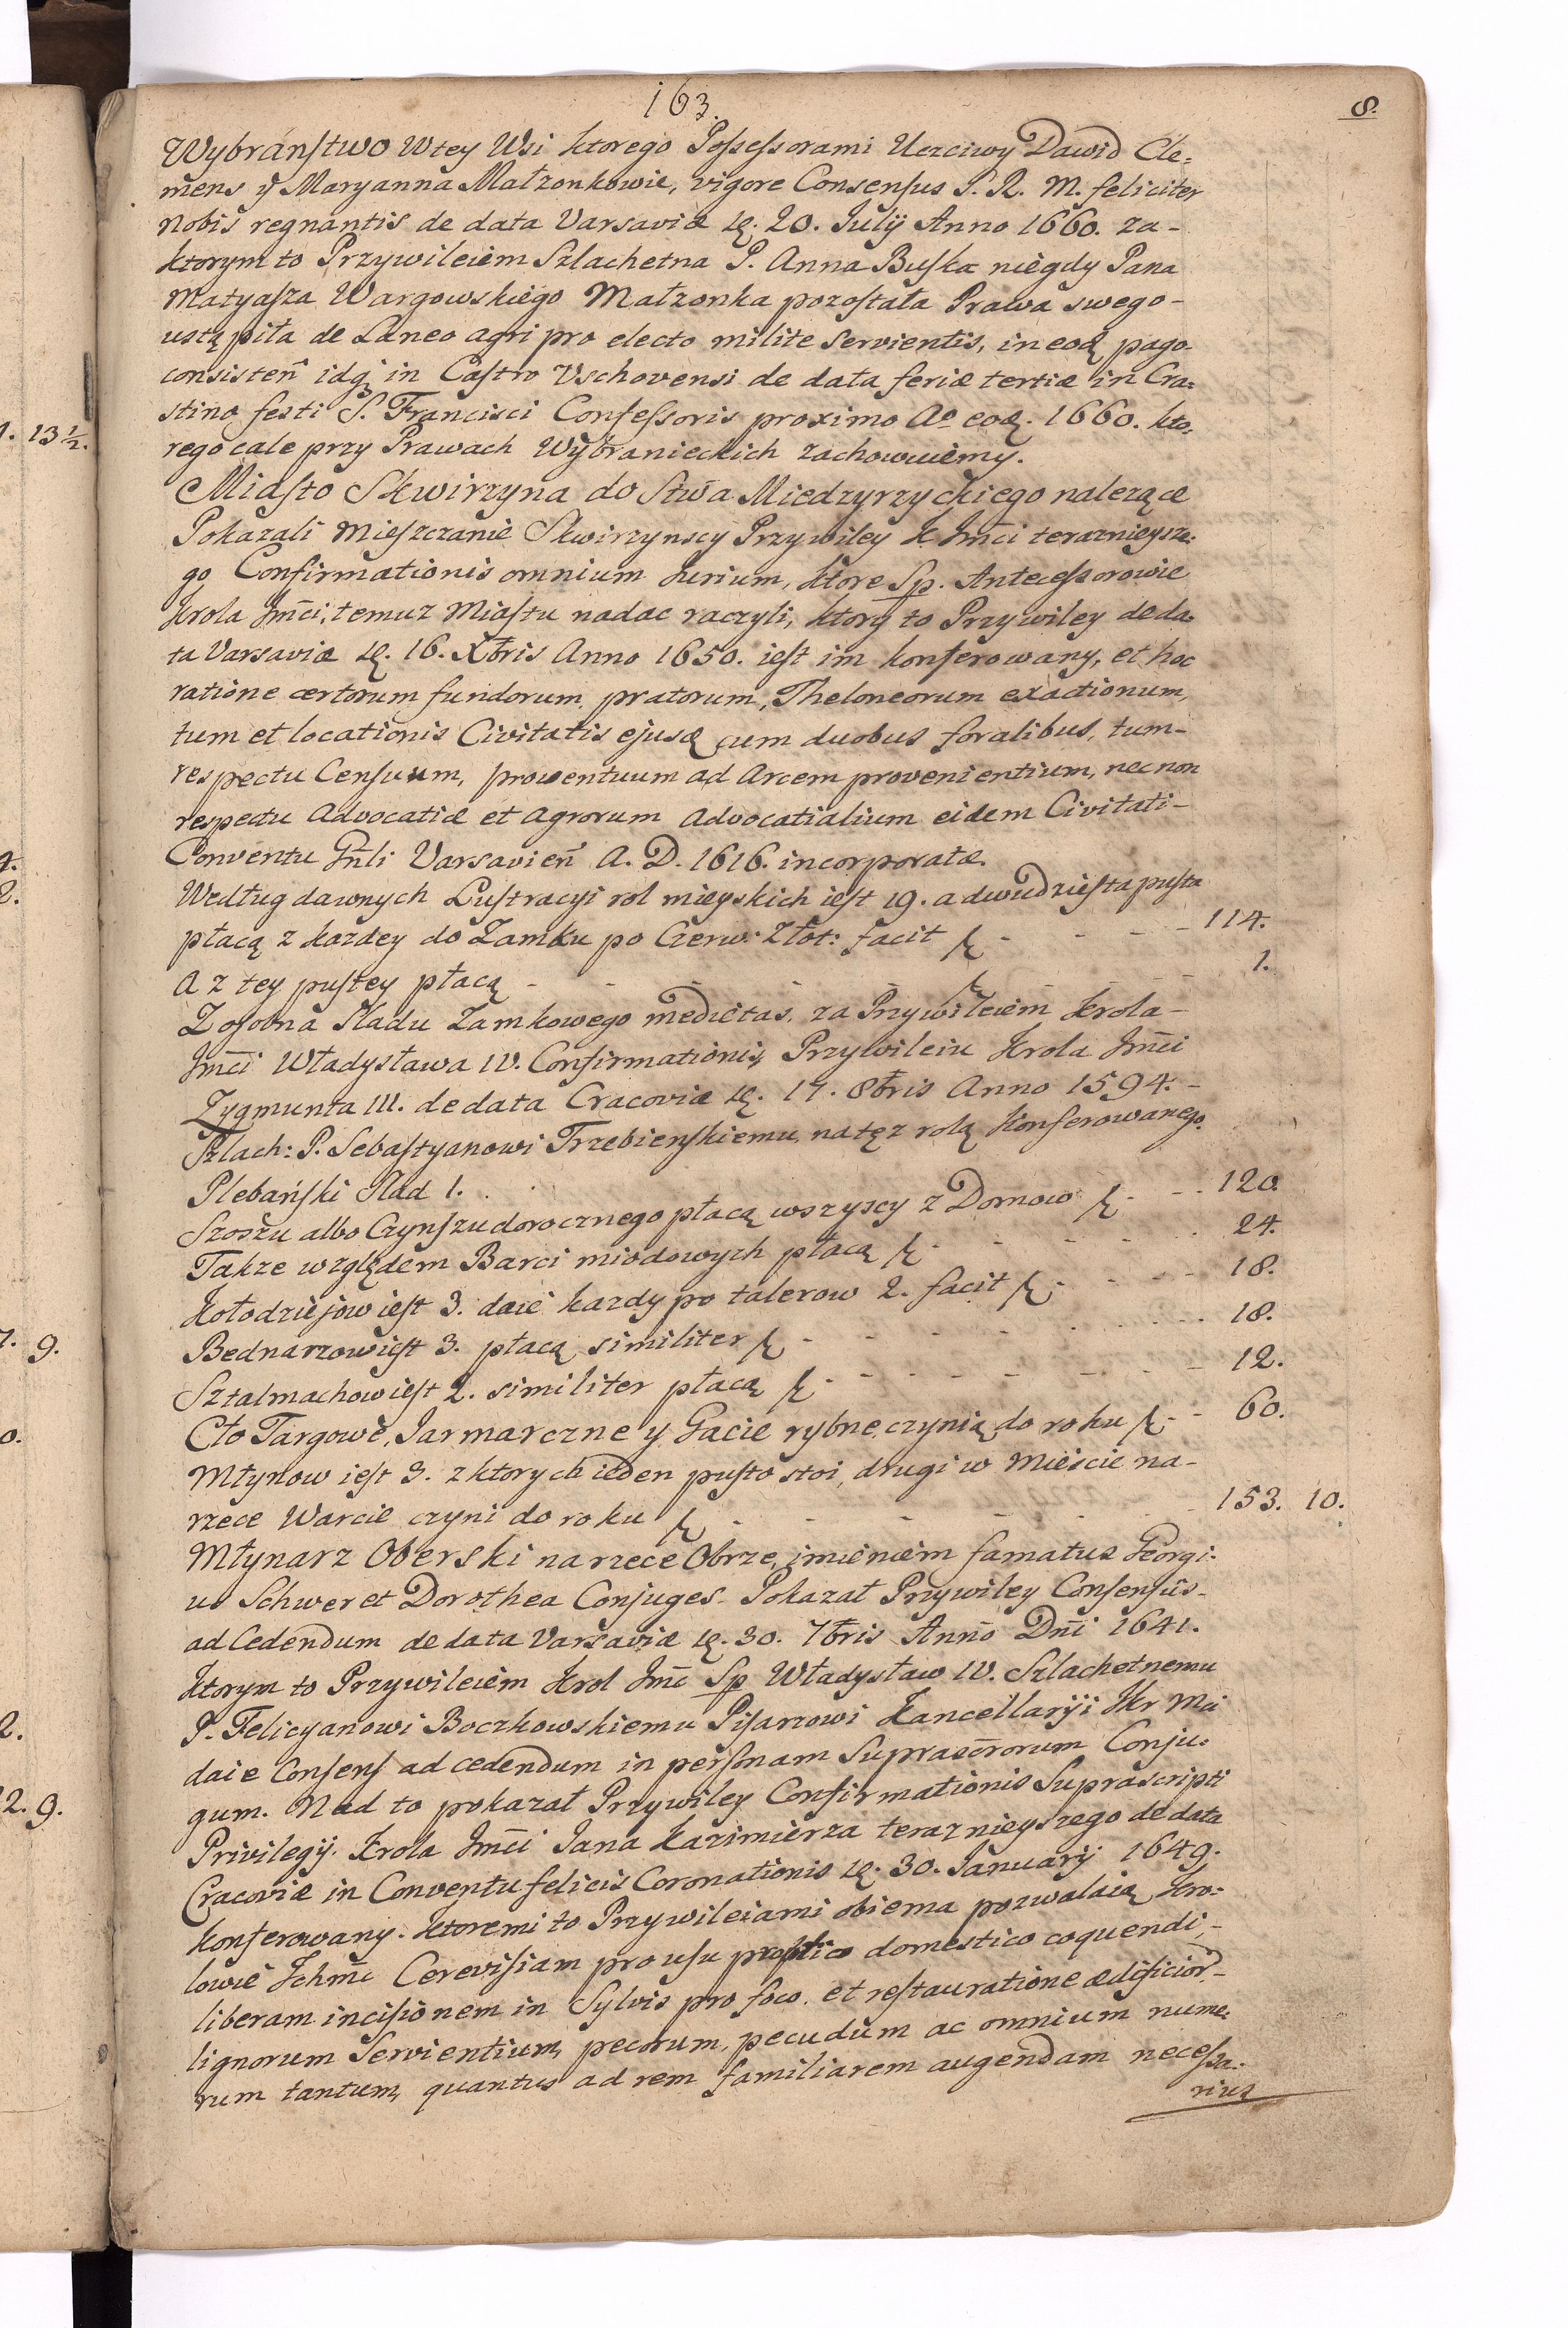 163.
8.
Wybránſtwo Wtey Wsi ktorego Poſseſsorami Uczciwy Dawid Cle:
mens ÿ Maryanna Małzonkowie, vigore Consenſus S. R. M. feliciter
nobis regnantis de data Varsaviæ d. 20. Julÿ Anno 1660. za-
ktorym to Przywileiem Szlachetna P. Anna Buſka niegdy Pana
Matyaſza Wargowskiego Małzonka pozoſtała Prawa swego-
ustąpiła de Laneo agri pro electo milite Servientis, in eodę pago
consisteñ idę in Caſtro Vschovensi de data feriæ tertiæ in Cra:
stino festi S. Francisci Confeſsoris proximo Ao eodę. 1660. kto.
rego cale przy Prawach Wybranieckich zachowuiemy.
Miaſto Skwirzyna do Stw̃a Miedzyrzyckiego nalezące
Pokazali Mieſzczanie Skwirzynscy Przywiley K Jm̃ci terazniejsze:
go Confirmationis omnium Jurium, ktore Sp. Anteceſsorowie
Krola Jm̃ci, temuz Miaſtu nadac raczyli, ktory to Przywiley de da:
ta Varsaviæ d. 16. Xbris Anno 1650. ieſt im konferowany, et hoc
ratione certorum fundorum, pratorum, Theloneorum exactionum,
tum et locationis Civitatis ejusdę cum duobus foralibus, tum-
respectu Cenſuum, proventuum ad Arcem provenientium, nec non
respectu Advocatiæ et Agrorum Advocatialium eidem Civitati-
Conventu Gñli Varsavieñ A. D. 1616. incorporatæ.
Według dawnych Luſtracyi rol mieyskich ieſt 19. a dwudzieſta puſta
płacą z kazdey do Zamku po Czerw: Złot: facit f - - - 114.
A z tey puſtey płacą - - - - f - - - 1.
Z oſobna Sladu Zamkowego medietas, za Przywileiem Krola-
Jm̃ci Władysława IV. Confirmationis, Przywileiu Krola Jm̃ci
Zygmunta III. de data Cracoviæ d. 17. 8bris Anno 1594.-
Szlach: P. Sebaſtyanowi Trzebienſkiemu, na tęz rolą Konferowanego.
Plebański Slad 1. . .
Szosżu albo Czynſzu dorocznego płacą wszyscy z Domow f - - 120.
Takze względem Barci miodowych płacą f - - - - 24.
Kołodziejow ieſt 3. daie kazdy po talerow 2. facit f - - - 18.
Bednarzow ieſt 3. płacą similiter f - - - - - 18.
Sztalmachow ieſt 2. similiter płacą f - - - - - 12.
Cło Targowe, Jarmarczne y Gacie rybne, czynią do roku f - - 60.
Młynow ieſt 3. z ktorych ieden puſto stoi, drugi w Mieście na-
rzece Warcie czyni do roku f - - - - - 153. 10.
Młynarz Oberski na rzece Obrze, imieniem famatus Georgi:
us Schwer et Dorothea Conjuges. Pokazał Przywiley Conſenſus-
ad Cedendum de data Varsaviæ d. 30. 7bris Anño Dñi 1641.
Ktorym to Przywileiem Krol Jm̃c Sp Władysław IV. Szlachetnemu
P. Felicyanowi Boczkowskiemu Piſarzowi Kancellaryi Kr Mci
daie Conſenſ ad cedendum in perſonam Suprascr̃torum Conju:
gum. Nad to pokazał Przywiley Confirmationis Suprascripti
Privilegÿ. Krola Jm̃ci Jana Kazimierza teraznieyszego de data
Cracoviæ in Conventu felicis Coronationis d. 30. Januarÿ 1649.
konferowany. Ktoremi to Przywileiami obiema pozwalaią Kro:
lowie Jchm̃c Cereviſiam pro uſu domestico coquendi,-
liberam inciſionem in Sylvis pro foco, et reſtauratione ædificior̃-
lignorum Servientium, pecorum, pecudum ac omnium nume:
rum tantum, quantus ad rem familiarem augendam neceſsa:
rius
1. 13 ½.
4.
2.
7. 9.
0.
2.
12. 9.